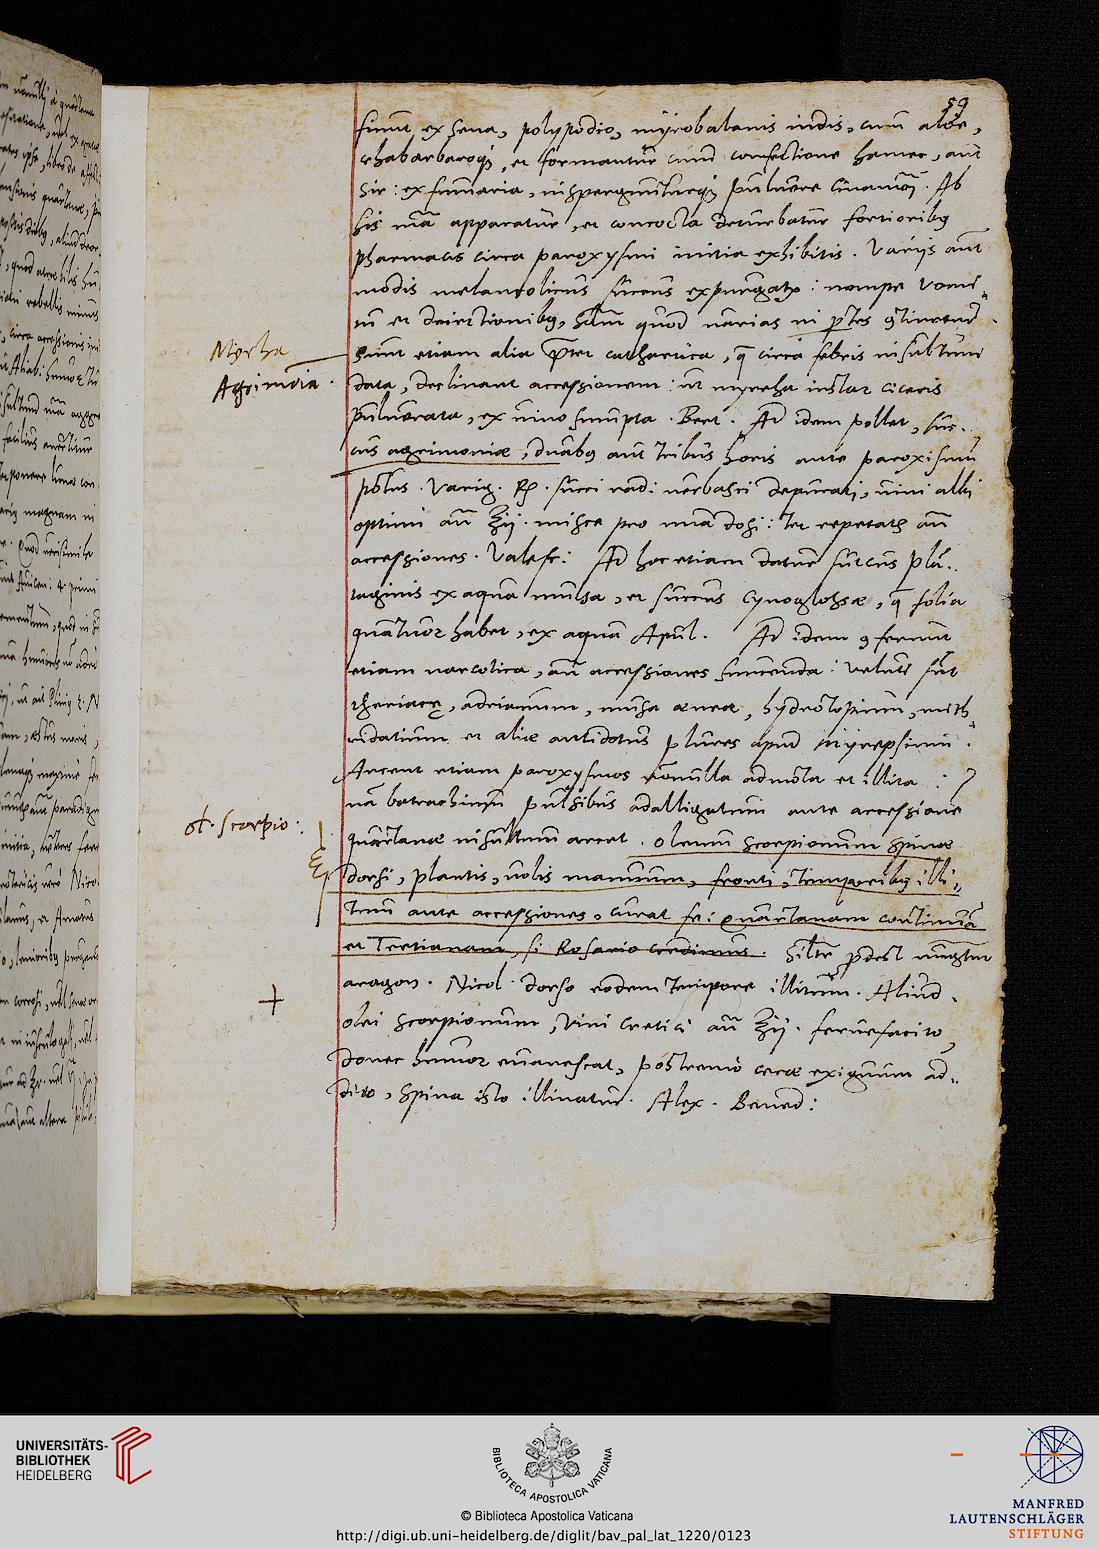 59
fiunt ex sena, polypodio, myrobalanis indis, cum aloe,
rhabarbaroq;, et formantur cum confectione hamec, aut
Sir: ex fumaria, inspergunturq; puluere cinamoi. Ab
his mã apparatur, et concocta deturbatur fortioribꝯ
pharmacis circa paroxysmi initia exhibitis. Varijs aut
modis melancolicus succus expurgatr: nempe vomi-
tu et deiectionibꝯ, quod uarias in ptes
Sunt etiam alia pter cathartica, q circa febris insultum
data, declinant accessionem: ut myrrha instar ciceris
puluerata, ex uino sumpta. Ad idem pollet, suc..
cus agrimoniæ, duabꝯ aut tribus horis ante paroxismũ
potus. Varig. ℞. succi radi: uerbasci depurati, uini albi
optimi añ ℥ij. misce pro una dosi: ter repetatr añ
accessiones. Valesc: Ad hoc etiam datur succus plã..
taginis ex aqua mulsa, et succus cynoglossæ, q folia
quattuor habet, ex aqua Apul. Ad idem ꝯferunt
etiam narcotica, añ accessiones sumenda: veluti sũt
theriacę, adrianum, musa ænea, hydrotopicum, mith,
ridatium et aliæ antidotus plures apud myrepsium.
Arcent etiam paroxysmos nonnulla admota et illita:
nã batrachium pulsibus adalligatum ante accessione
quartanæ insultum arcet. oleum scorpionum spinæ
dorsi, plantis, uolis manuum, fronti, temporibꝯ illi,,
tum ante accessiones, curat fe: quartanam continuã
et Tertianam, si Rosario credimus. Silr pdest
aragon. Nicol. dorso eodem tempore illitum. Aliud.
olei scorpionum, vini cretici añ ℥ij. feruefacito,
donec humor euanescat, postremo ceræ exiguum ad,,
dito, spina isto illinatur. Alex. Bened:
Myrha
Agrimonia.
ol. scorpio:
+
UNIVERSITÄTS-
BIBLIOTHEK
HEIDELBERG
BIBLIOTECA APOSTOLICA VATICANA
© Biblioteca Apostolica Vaticana
http://digi.ub.uni-heidelberg.de/diglit/bav_pal_lat_1220/0123
MANFRED
LAUTENSCHLÄGER
STIFTUNG